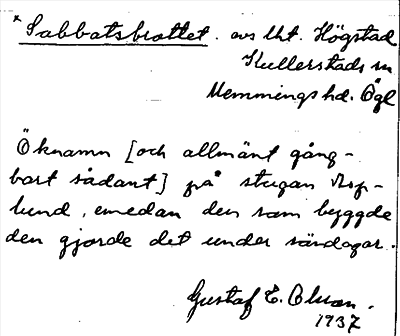 * Sabbatsbrottet. avs lht. Högstad
Kullerstads sn
Memmings hd. Ögl
Öknamn [och allmänt gång-
bart sådant] på stugan Asp-
lund, emedan den som byggde
den gjorde det under söndagar.
Gustaf E. Olsson.
1937